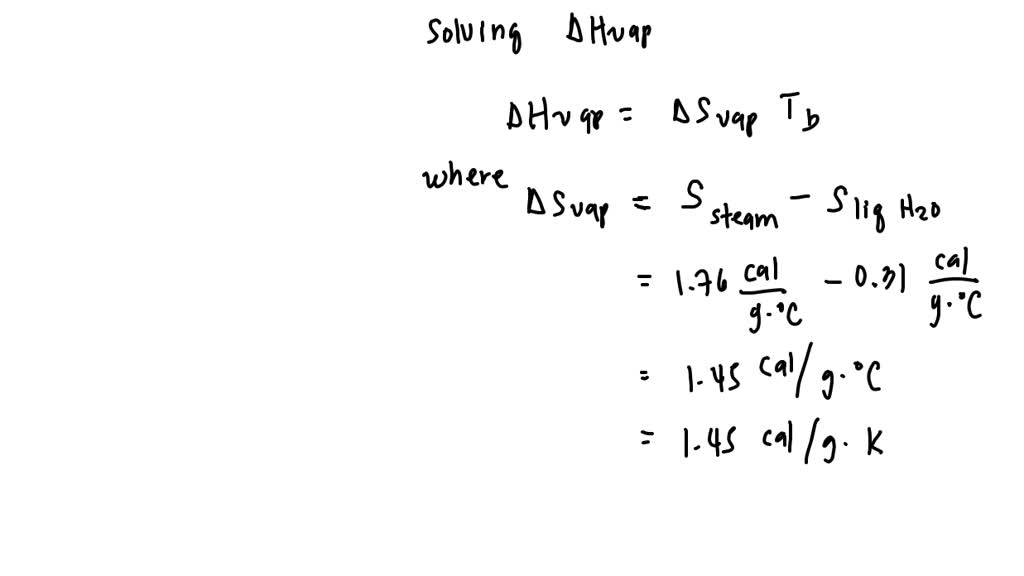 Solving ΔHvap
ΔHvap = ΔSvap Tb
where
ΔSvap = Ssteam − Sliq H2O
= 1.76 cal/g·°C − 0.31 cal/g·°C
= 1.45 cal/g·°C
= 1.45 cal/g·K